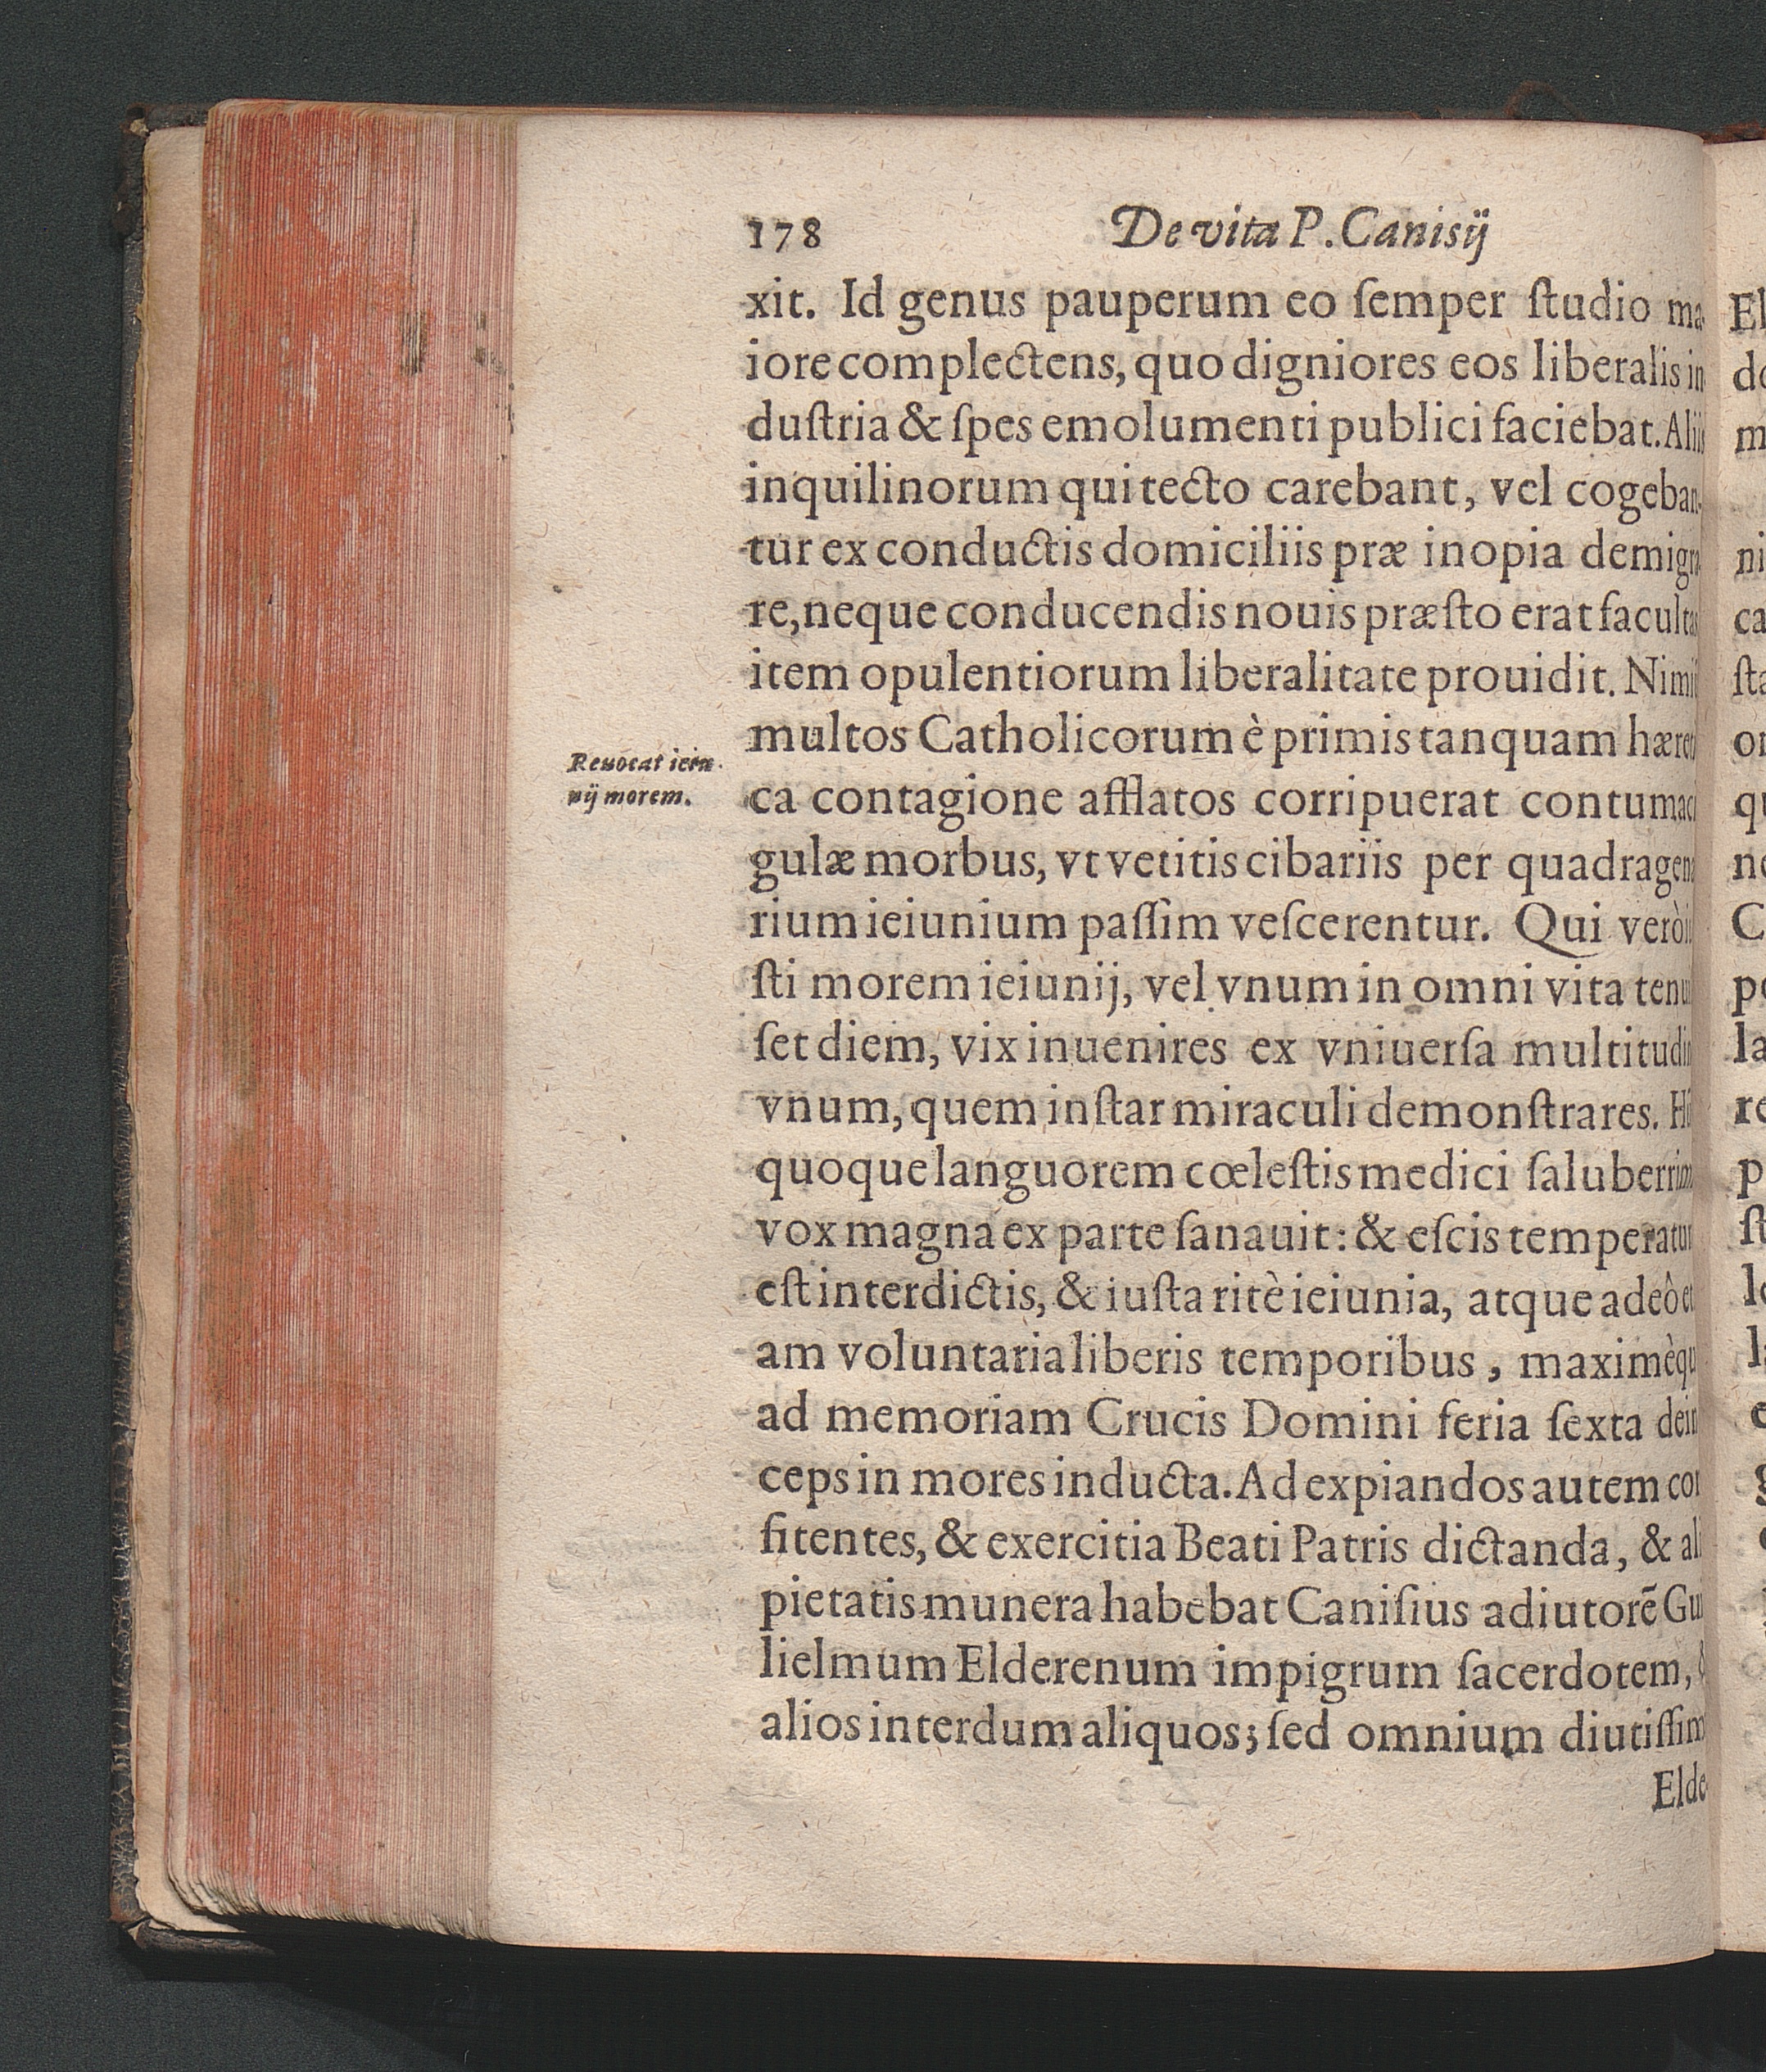 178 De vita P. Canisij
xit. Id genus pauperum eo ſemper ſtudio ma-
iore complectens, quo digniores eos liberalis in
duſtria & ſpes emolumenti publici faciebat. Aliis
inquilinorum qui tecto carebant, vel cogeban-
tur ex conductis domiciliis præ inopia demigra
re, neque conducendis nouis præſto erat facultas
item opulentiorum liberalitate prouidit. Nimii
Reuocat ieiu-
nij morem.
multos Catholicorum è primis tanquam hæreti
ca contagione afflatos corripuerat contumaci
gulæ morbus, vt vetitis cibariis per quadragena
rium ieiunium paſſim veſcerentur. Qui verò iu
ſti morem ieiunij, vel vnum in omni vita tenuiſ
ſet diem, vix inuenires ex vniuerſa multitudin
vnum, quem inſtar miraculi demonſtrares. Hũ
quoque languorem cœleſtis medici ſaluberrim
vox magna ex parte ſanauit: & eſcis temperatum
eſt interdictis, & iuſta ritè ieiunia, atque adeò et
am voluntaria liberis temporibus, maximèqu
ad memoriam Crucis Domini feria ſexta dein
ceps in mores inducta. Ad expiandos autem con
fitentes, & exercitia Beati Patris dictanda, & ali
pietatis munera habebat Caniſius adiutorẽ Gui
lielmum Elderenum impigrum ſacerdotem, &
alios interdum aliquos; ſed omnium diutiſſim
Elde-